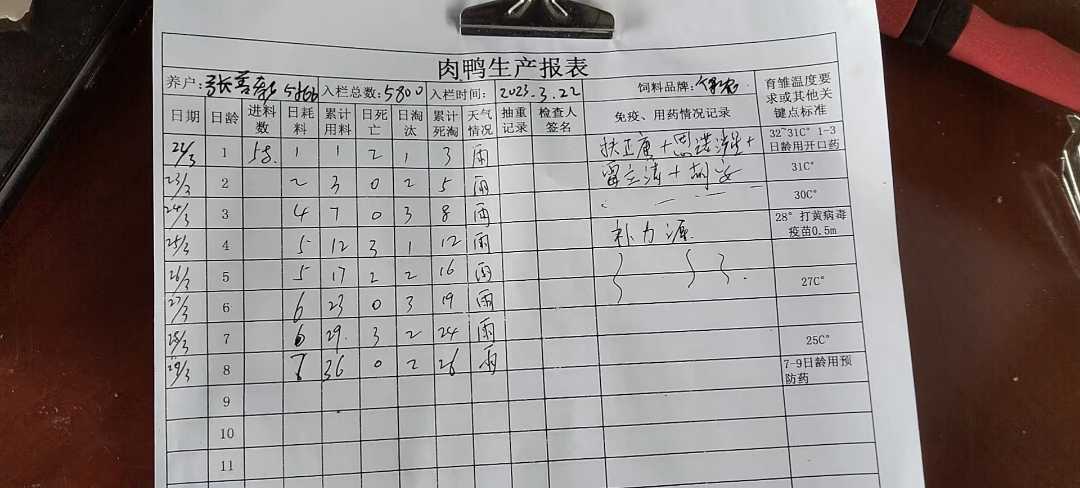 肉鸭生产报表
养户: 张善 入栏总数: 5800 入栏时间: 2023.3.22 饲料品牌: 育雏温度要求或其他关键点标准
日期 日龄 进料数 日耗料 累计用料 日死亡 日淘汰 累计死淘 天气情况 抽重记录 检查人签名 免疫、用药情况记录
22/3 1 58. 1 1 2 1 3 雨 扶正康+ + 32~31C° 1-3日龄用开口药
23/3 2 2 3 0 2 5 雨 + 31C°
24/3 3 4 7 0 3 8 雨 30C°
25/3 4 5 12 3 1 12 雨 补力源 28° 打黄病毒疫苗0.5m
26/3 5 5 17 2 2 16 雨 27C°
27/3 6 6 23 0 3 19 雨
28/3 7 6 29. 3 2 24 雨 25C°
29/3 8 7 36 0 2 26 雨 7-9日龄用预防药
9
10
11